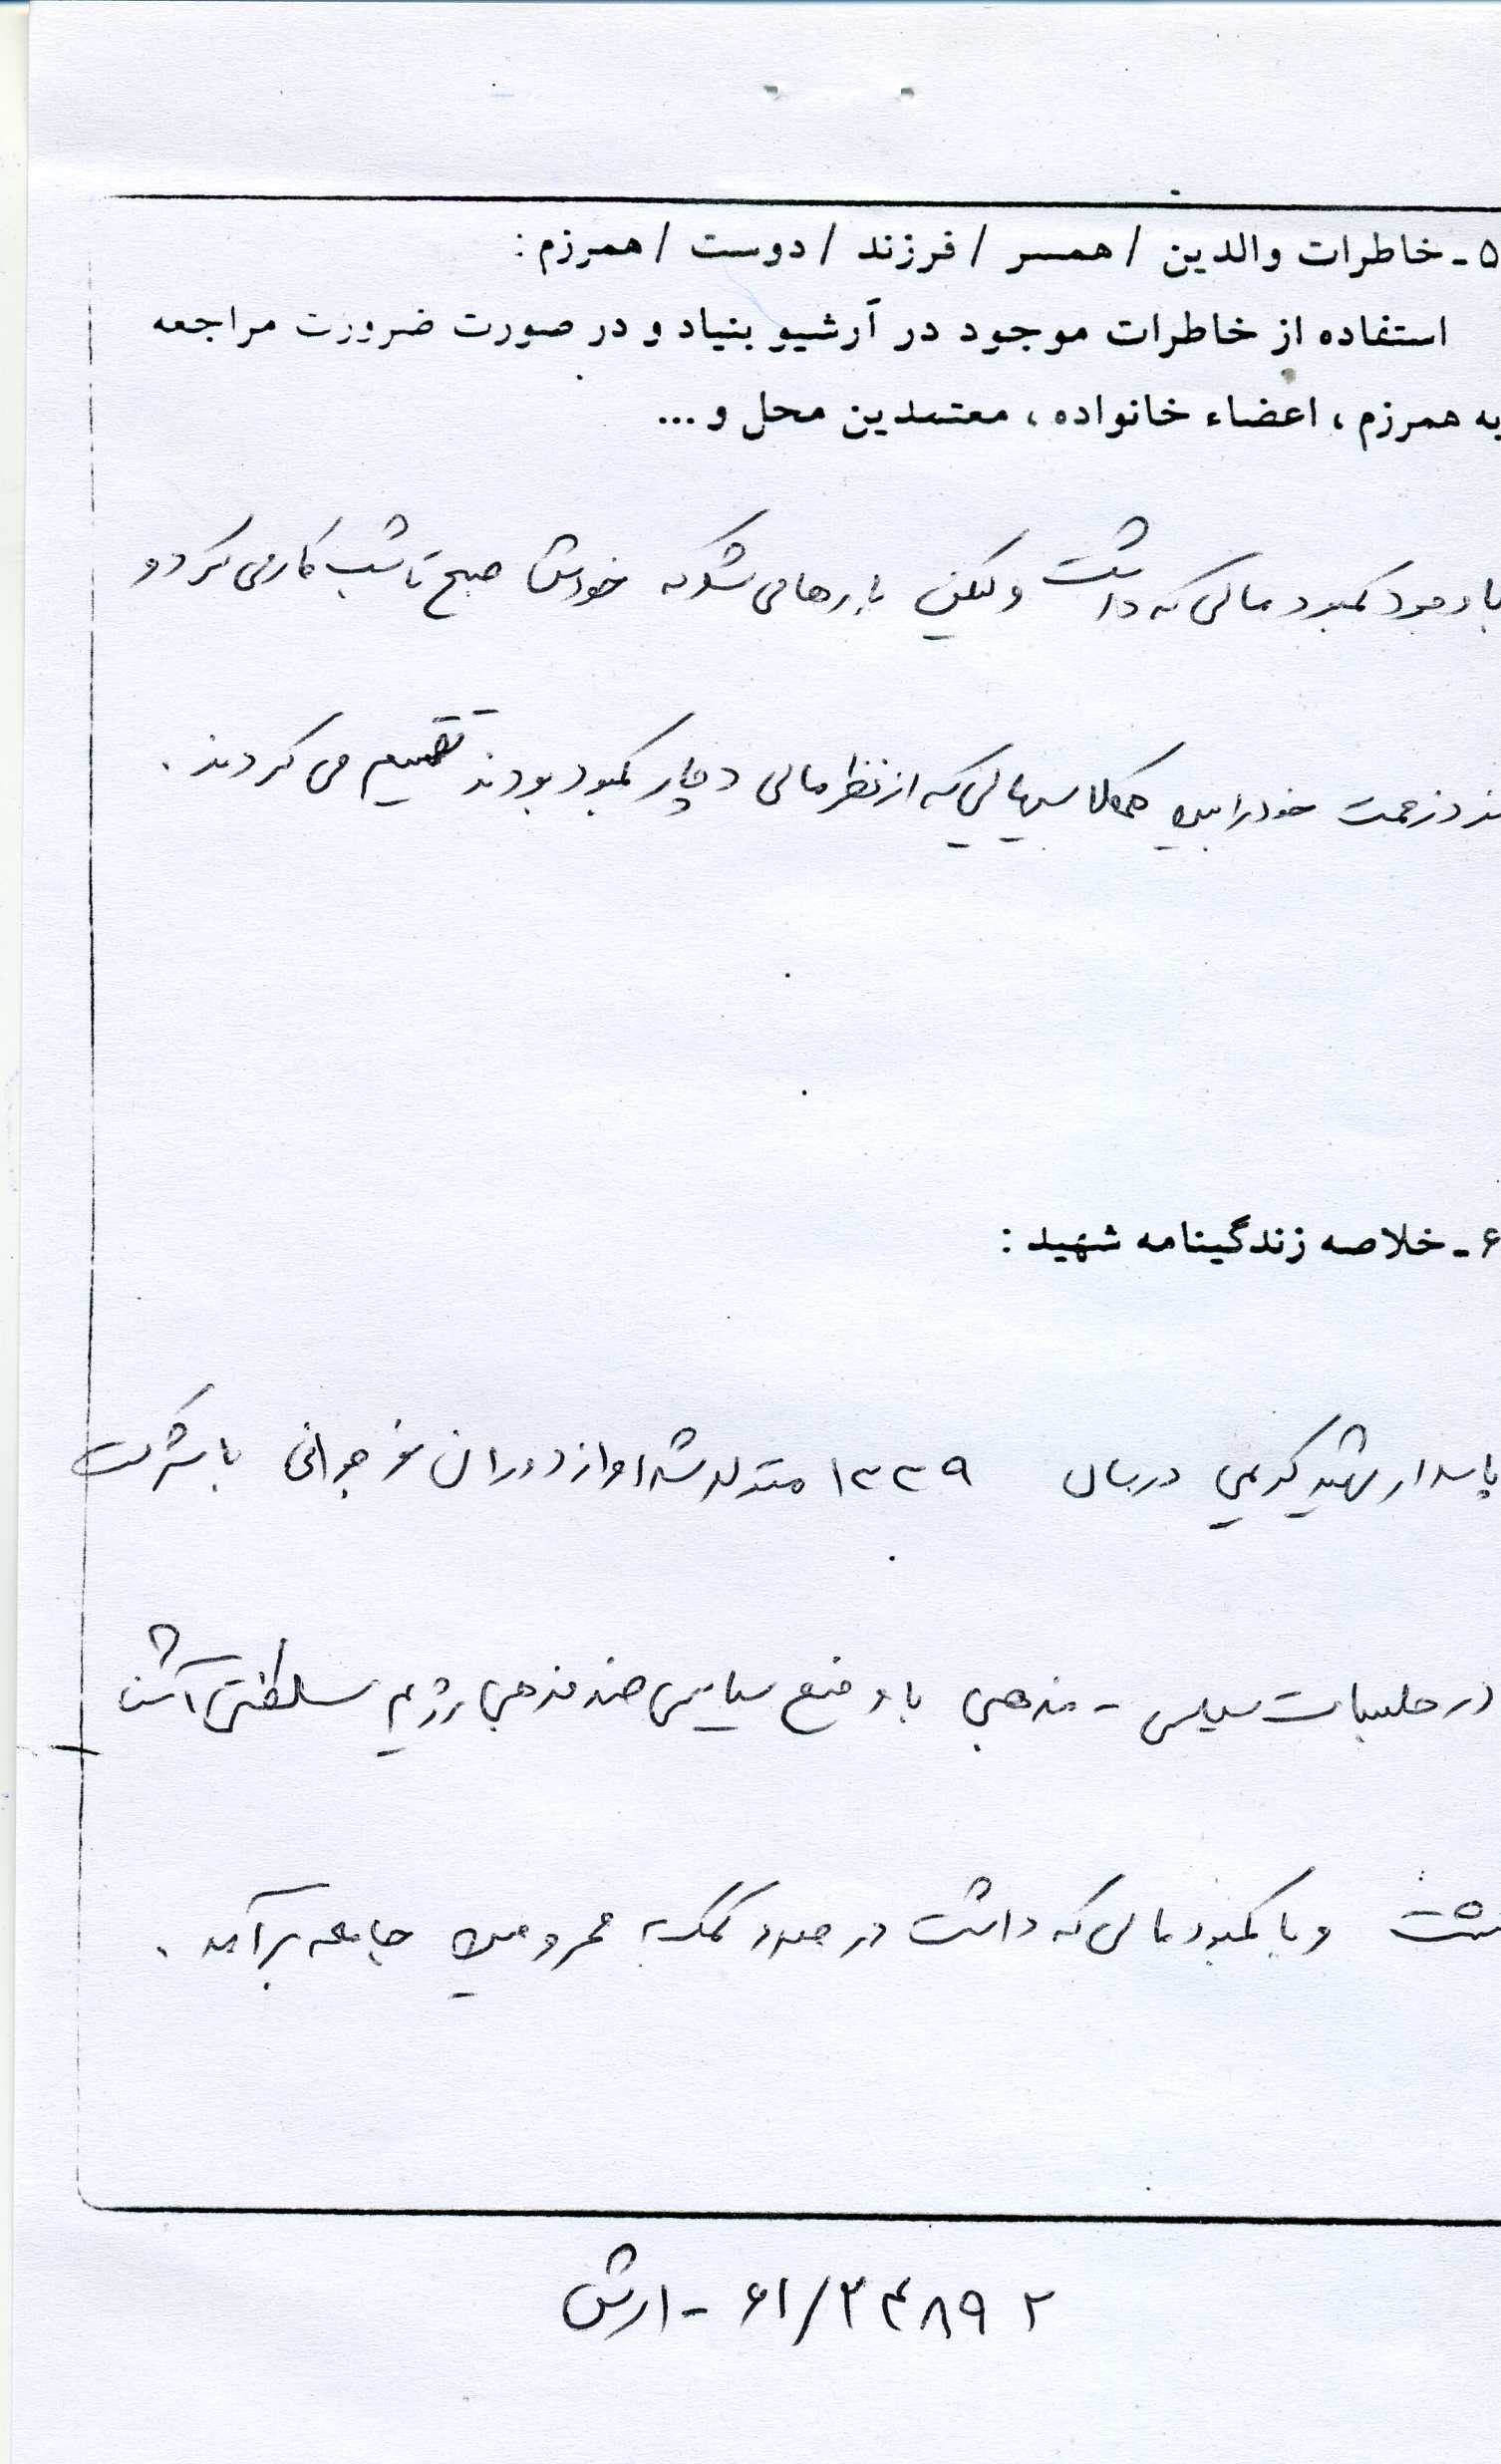 ۵ - خاطرات والدین / همسر / فرزند / دوست / همرزم :
استفاده از خاطرات موجود در آرشیو بنیاد و در صورت ضرورت مراجعه
به همرزم ، اعضاء خانواده ، معتمدین محل و ...
با وجود کمبود مالی که داشت ولیکن بارها می شد که خودش صبح تا شب کار می کرد و
مزد زحمت خود را بین همکلاسیهایی که از نظر مالی دچار کمبود بودند تقسیم می کردند .
۶ - خلاصه زندگینامه شهید :
پاسدار شهید کریمی در سال ۱۳۳۹ متولد شد او از دوران نوجوانی با شرکت
در جلسات سیاسی - مذهبی با وضع سیاسی ضد مذهبی رژیم سلطنتی آشنا
گشت و با کمبود مالی که داشت در صدد کمک به محرومین جامعه برآمد .
۶۱/۲۴۸۹۲ - ارتش